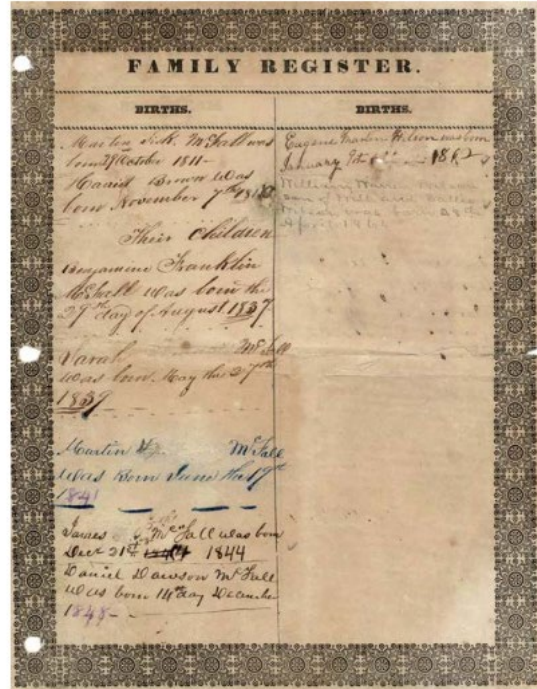 FAMILY REGISTER.
BIRTHS.
Martin McFall was
born 29 October 1811-
Brown Was
born November 7th
Their Children
Benjamine Franklin
McFall was born the
29th day of August 1837
Sarah McFall
was born May the 27th
1839
Martin McFall
Was Born June the 19th
1841
James McFall was born
Dect 21st 1844
Daniel Dawson McFall
Was born 14th day December
1848-
BIRTHS.
Eugene Marten Wilson was born
January 1862
William Wilson
son of Will and
Wilson was born 28th
April